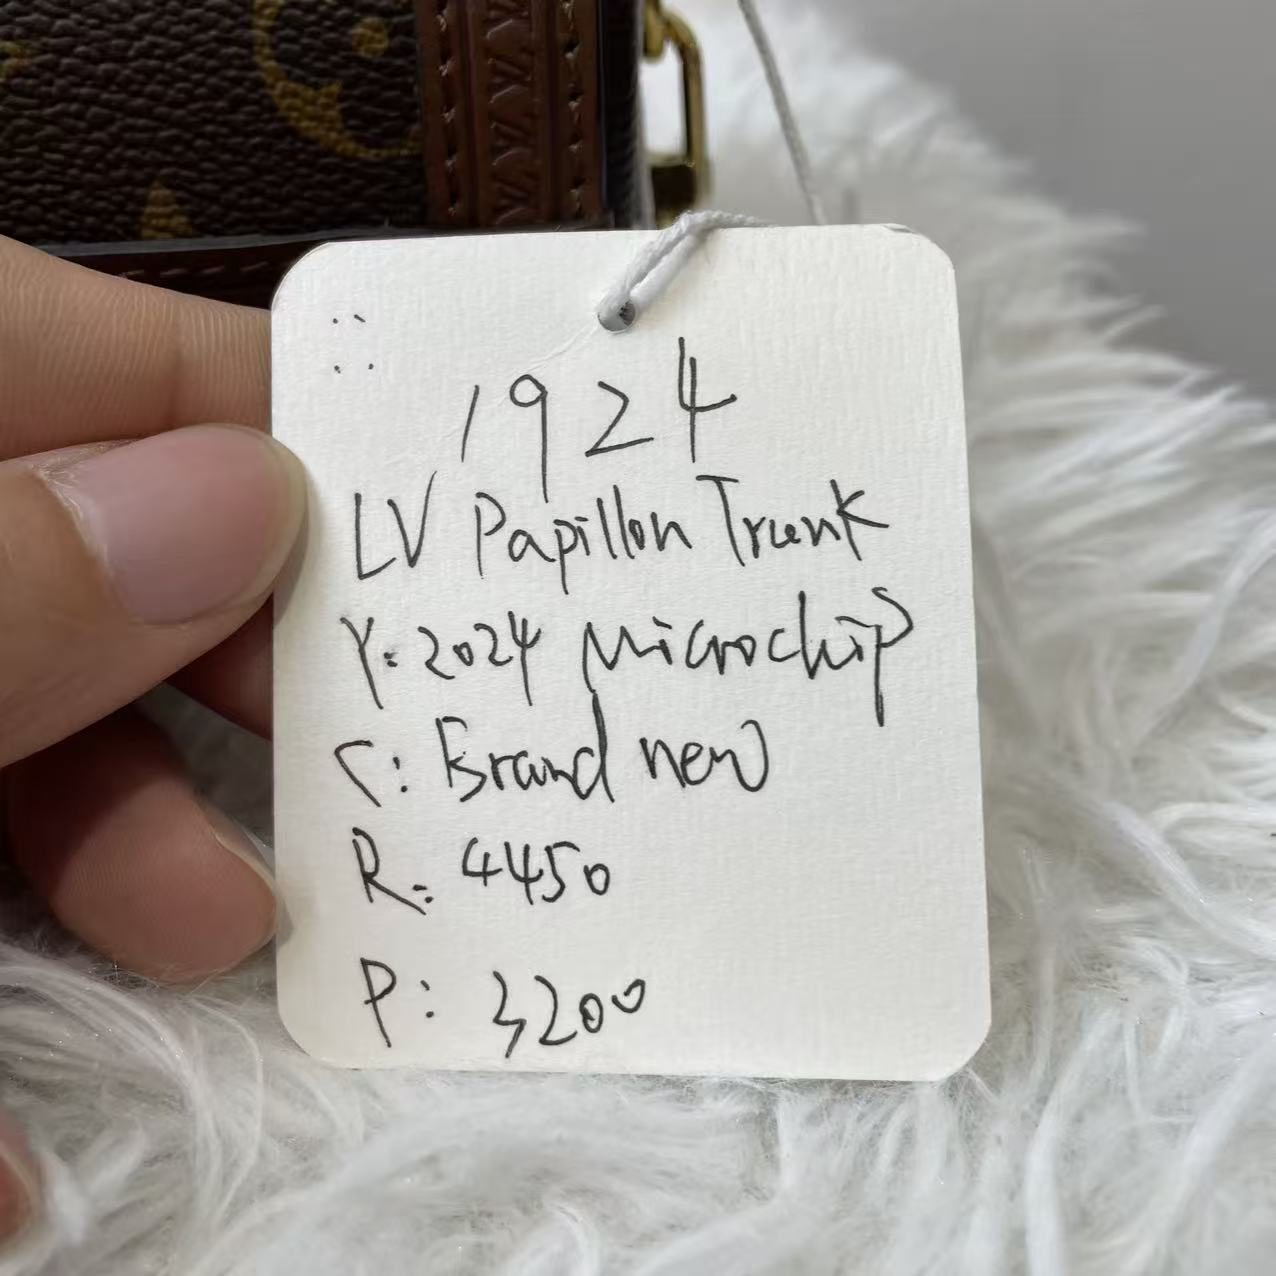 1924
LV Papillon Trunk
Y: 2024 Microchip
C: Brand new
R: 4450
P: 3200